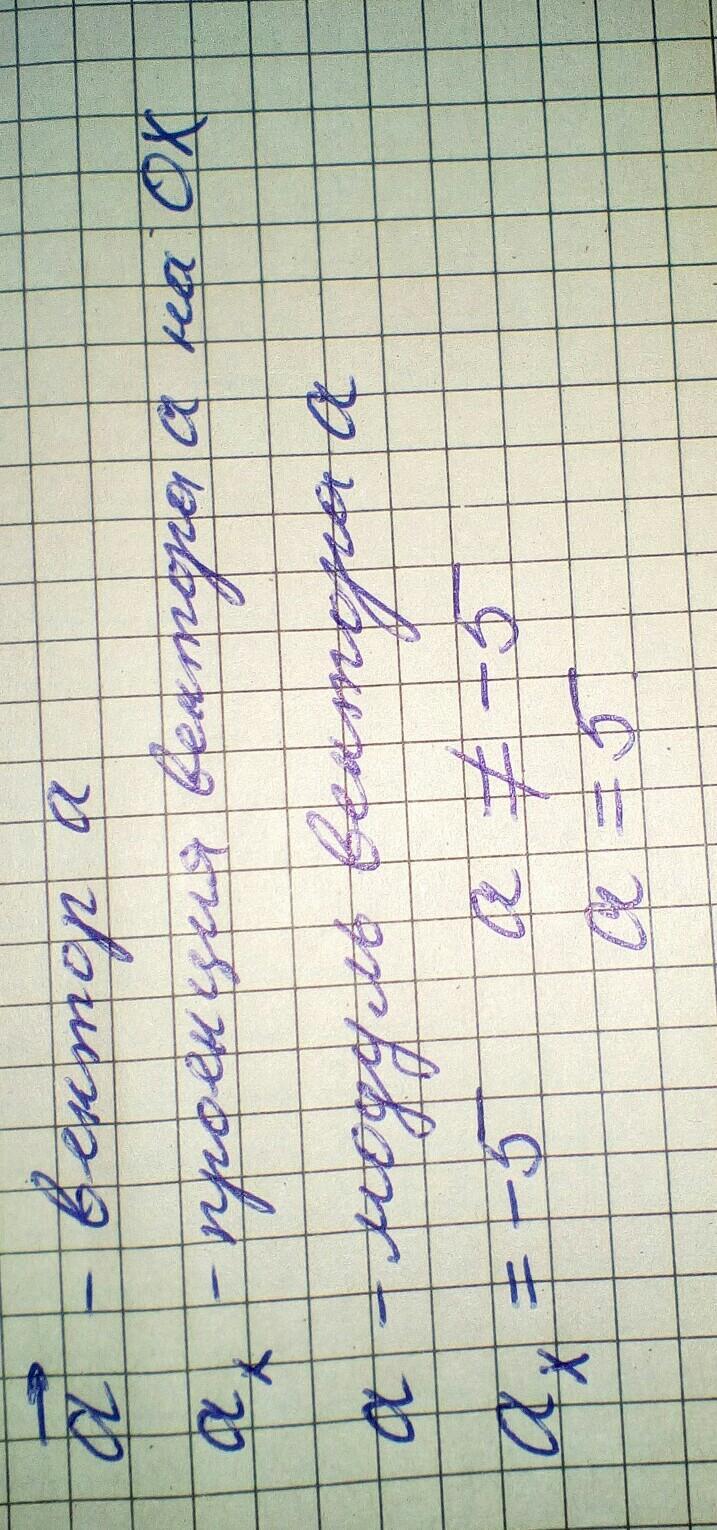 a⃗ - вектор а
aₓ - проекция вектора а на ОХ
а - модуль вектора а
aₓ = -5 a ≠ -5
a = 5